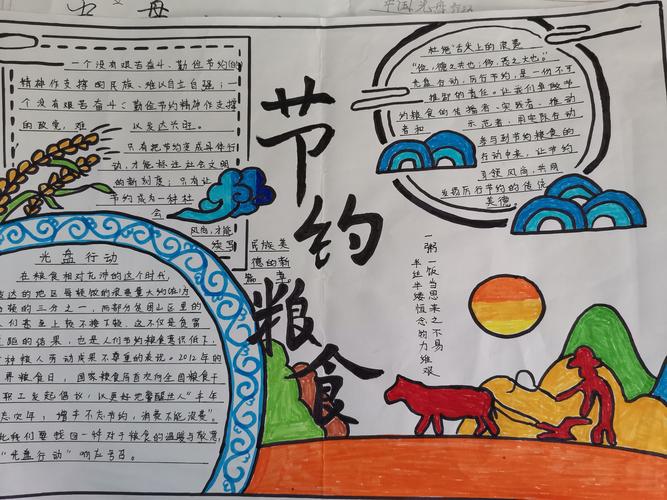 一个没有艰苦奋斗、勤俭节约
精神作支撑的民族,难以自立自强;一
个没有艰苦奋斗、勤俭节约精神作支撑
的政党,难 以发达兴旺。
只有把节约变成具体行
动,才能标注社会文明
的新刻度;只有让
节约成为一种社
会
风尚,才能
续写 民族美
德的新
篇章。
节约粮食
杜绝"舌尖上的浪费"
"俭,德之共也;侈,恶之大也。"
光盘行动,厉行节约,是一份不可
推卸的责任。让我们争做节
约粮食的传播者、实践者、推动
者和 示范者,用实际行动
参与到节约粮食的
行动中来,让节约
引领风尚,共同
发扬厉行节约的传统
美德。
一粥一饭当思来之不易
半丝半缕恒念物力维艰
光盘行动
在粮食相对充沛的这个时代,
发达的地区每顿饭的浪费量大约饭
的三分之一,而部分贫困山区里的
人们甚至上顿不接下顿。这不仅是贫富
差距的结果,也是人们节约粮食意识低下,
种粮人劳动成果不尊重的表现。2012年的
界粮食日,国家粮食局首次向全国粮食干
职工发起倡议,以更好地警醒世人"丰年
忘灾年;增产不忘节约,消费不能浪费"。
此我们要找回一种对于粮食的温暖与敬意,
"光盘行动"响应号召。